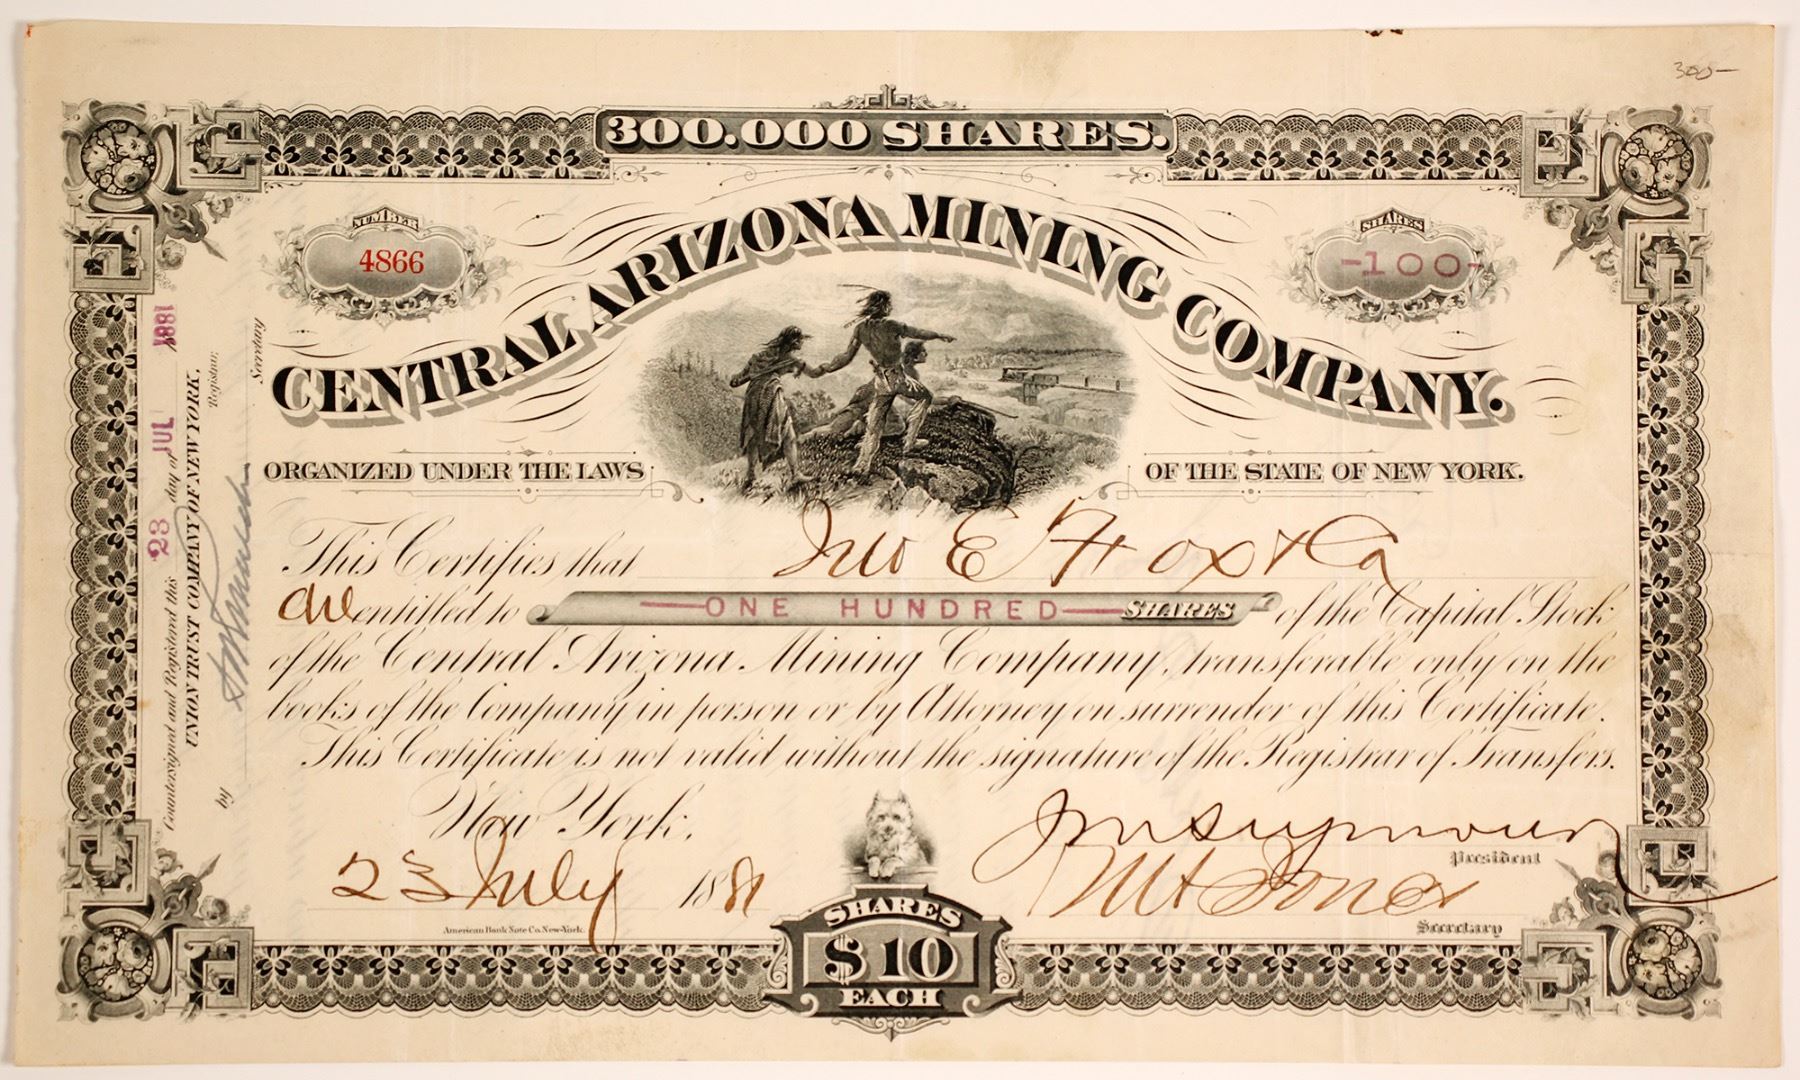 300-
300.000 SHARES.
NUMBER
4866
SHARES
-100-
CENTRAL ARIZONA MINING COMPANY.
ORGANIZED UNDER THE LAWS OF THE STATE OF NEW YORK.
This Certifies that Jno E Fox & Co
are entitled to —ONE HUNDRED— SHARES of the Capital Stock
of the Central Arizona Mining Company, transferable only on the
books of the Company in person or by Attorney on surrender of this Certificate.
This Certificate is not valid without the signature of the Registrar of Transfers.
New York,
23 July 1881
President
Secretary
American Bank Note Co. New-York.
SHARES
$10
EACH
Countersigned and Registered this 23 day of JUL 1881
UNION TRUST COMPANY OF NEW YORK,
Registrar,
by Secretary